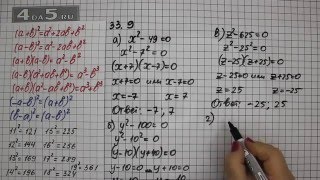 4ДА5.RU
(a+b)²=a²+2ab+b²
(a-b)²=a²-2ab+b²
(a+b)(a-b)=a²-b²
(-a-b)²=(a+b)²
(b-a)²=(a-b)²
11²=121 15²=225
12²=144 16²=256
14²=196
19²=361
33.9
а) x²-49=0
x²-7²=0
(x+7)(x-7)=0
x+7=0 или x-7=0
x=-7 x=7
Ответ: -7, 7
б) y²-100=0
y²-10²=0
(y-10)(y+10)=0
y-10=0 или y+10=0
в) z²-625=0
z²-25²=0
(z-25)(z+25)=0
z-25=0 или z+25=0
z=25 z=-25
Ответ: -25, 25
г)